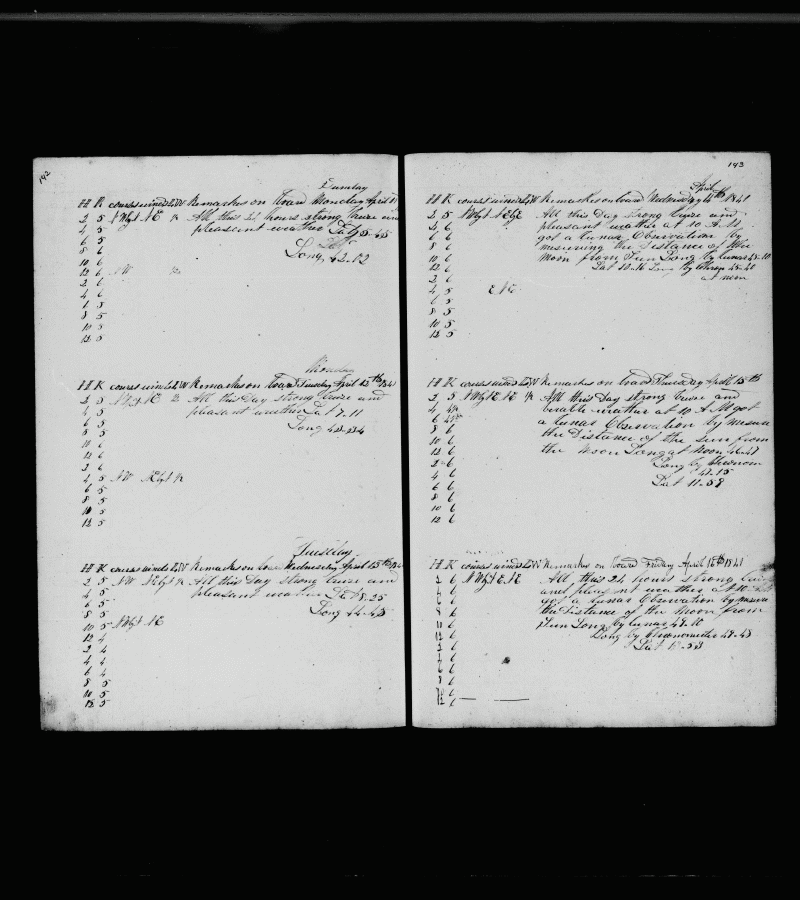 142
Sunday
H K courses winds LW Remarks on board Monday April 11
2 5 NWyt NE All this 24 hours strong breze and
4 5 pleasent weather Lat 5-45
6 5
8 6 Long 42-02
10 6
12 6 NW
2 6
4 6
6 5
8 5
10 5
12 5
Monday
H K courses winds LW Remarks on board Tuesday April 12th 1841
2 5 NWyt NE All this Day strong breze and
4 5 pleasant weather Lat 7-11
6 5
8 5 Long 43-34
10 6
12 6
2 6
4 5 NW NEyt
6 5
8 5
10 5
12 5
Tuesday
H K courses winds LW Remarks on board Wednesday April 13th
2 5 NW NEyt All this Day strong breze and
4 5 pleasent weather Lat 8-25
6 5
8 5 Long 44-45
10 5 NWyt NE
12 4
2 4
4 4
6 4
8 5
10 5
12 5
143
April
H K courses winds LW Remarks on board Wednesday 14th 1841
2 5 NWyt NEyE All this Day strong breze and
4 6 pleasant weather at 10 A.M.
6 6 got a lunar Observation by
8 6 mesuring the Distance of the
10 6 Moon from Sun Long by lunar 45-10
12 6 Lat 10-16 Long by Chron 45-40
2 6 at noon
4 5 ENE
6 5
8 5
10 5
12 5
H K courses winds LW Remarks on board Thursday April 15th
2 5 NWyt E NE All this Day strong breze and
4 weather at 10 A.M got
6 a lunar Observation by mesur
8 6 the Distance of the sun from
10 6 the Moon Long at Noon 46-47
12 6
2 6 Long by Chronom
4 6 47-15
6 6 Lat 11-58
8 6
10 6
12 6
H K courses winds LW Remarks on board Friday April 16th 1841
2 6 NWyt E NE All this 24 hours strong
4 6 and pleasent weather at 10
6 6 got a lunar Observation by mesur
8 6 the Distance of the Moon from
10 6 Sun Long by lunar 49-10
12 6 Long by Chronometer 49-43
2 6 Lat 13-58
4 6
6 6
8 6
10 6
12 6